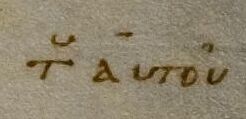 τ̆ αὐτοῦ